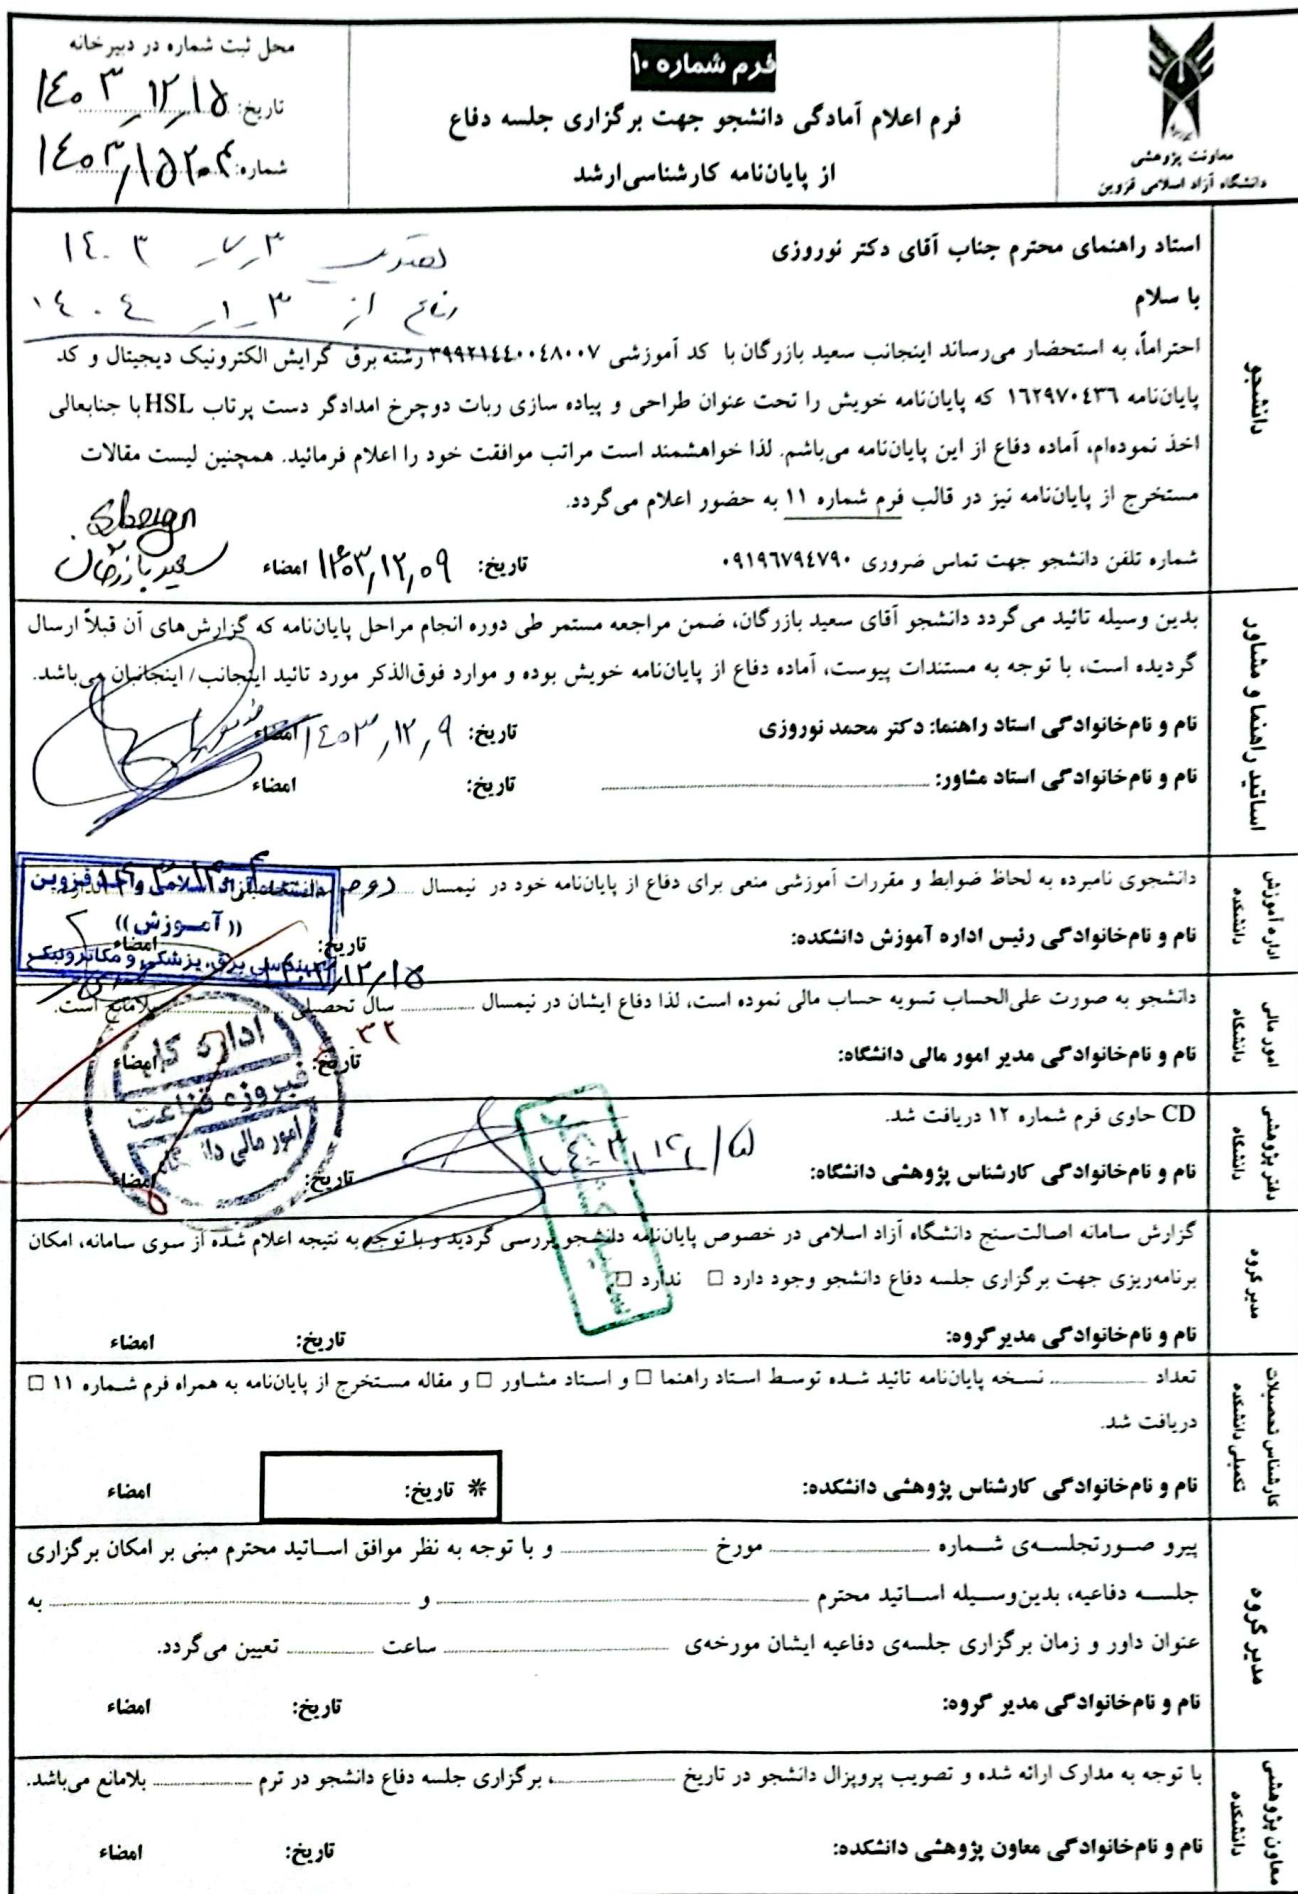 معاونت پژوهشی
دانشگاه آزاد اسلامی قزوین
فرم شماره ۱۰
فرم اعلام آمادگی دانشجو جهت برگزاری جلسه دفاع
از پایان‌نامه کارشناسی‌ارشد
محل ثبت شماره در دبیرخانه
تاریخ: ۱۴۰۳,۱۲,۱۵
شماره: ۱۴۰۳/۱۵۲۰۴
دانشجو
استاد راهنمای محترم جناب آقای دکتر نوروزی
با سلام
احتراماً، به استحضار می‌رساند اینجانب سعید بازرگان با کد آموزشی ۳۹۹۲۱٤٤۰۰٤۸۰۰۷ رشته برق گرایش الکترونیک دیجیتال و کد
پایان‌نامه ۱٦۲۹۷۰٤۳٦ که پایان‌نامه خویش را تحت عنوان طراحی و پیاده سازی ربات دوچرخ امدادگر دست پرتاب HSL با جنابعالی
اخذ نموده‌ام، آماده دفاع از این پایان‌نامه می‌باشم. لذا خواهشمند است مراتب موافقت خود را اعلام فرمائید. همچنین لیست مقالات
مستخرج از پایان‌نامه نیز در قالب فرم شماره ۱۱ به حضور اعلام می‌گردد.
شماره تلفن دانشجو جهت تماس ضروری ۰۹۱۹٦۷۹٤۷۹۰ تاریخ: ۱۴۰۳,۱۲,۰۹ امضاء سعید بازرگان
اساتید راهنما و مشاور
بدین وسیله تائید می‌گردد دانشجو آقای سعید بازرگان، ضمن مراجعه مستمر طی دوره انجام مراحل پایان‌نامه که گزارش‌های آن قبلاً ارسال
گردیده است، با توجه به مستندات پیوست، آماده دفاع از پایان‌نامه خویش بوده و موارد فوق‌الذکر مورد تائید اینجانب/ اینجانبان می‌باشد.
نام و نام‌خانوادگی استاد راهنما: دکتر محمد نوروزی تاریخ: ۱٤۰۳,۱۲,۹ امضاء
نام و نام‌خانوادگی استاد مشاور: تاریخ: امضاء
اداره آموزش دانشکده
دانشجوی نامبرده به لحاظ ضوابط و مقررات آموزشی منعی برای دفاع از پایان‌نامه خود در نیمسال دوم
نام و نام‌خانوادگی رئیس اداره آموزش دانشکده: تاریخ: امضاء
دانشگاه آزاد اسلامی واحد قزوین
((آموزش))
مهندسی برق، پزشکی و مکاترونیک
امور مالی دانشگاه
دانشجو به صورت علی‌الحساب تسویه حساب مالی نموده است، لذا دفاع ایشان در نیمسال سال تحصیلی بلامانع است.
نام و نام‌خانوادگی مدیر امور مالی دانشگاه: تاریخ: امضاء
اداره کل
فیروزه قناعت
امور مالی دانشگاه
دفتر پژوهشی دانشگاه
CD حاوی فرم شماره ۱۲ دریافت شد.
نام و نام‌خانوادگی کارشناس پژوهشی دانشگاه: تاریخ: امضاء
مدیر گروه
گزارش سامانه اصالت‌سنج دانشگاه آزاد اسلامی در خصوص پایان‌نامه دانشجو بررسی گردید و با توجه به نتیجه اعلام شده از سوی سامانه، امکان
برنامه‌ریزی جهت برگزاری جلسه دفاع دانشجو وجود دارد □ ندارد □.
نام و نام‌خانوادگی مدیرگروه: تاریخ: امضاء
کارشناس تحصیلات تکمیلی دانشکده
تعداد نسخه پایان‌نامه تائید شده توسط استاد راهنما □ و استاد مشاور □ و مقاله مستخرج از پایان‌نامه به همراه فرم شماره ۱۱ □
دریافت شد.
نام و نام‌خانوادگی کارشناس پژوهشی دانشکده: * تاریخ: امضاء
مدیر گروه
پیرو صورتجلسه‌ی شماره مورخ و با توجه به نظر موافق اساتید محترم مبنی بر امکان برگزاری
جلسه دفاعیه، بدین‌وسیله اساتید محترم و به
عنوان داور و زمان برگزاری جلسه‌ی دفاعیه ایشان مورخه‌ی ساعت تعیین می‌گردد.
نام و نام‌خانوادگی مدیر گروه: تاریخ: امضاء
معاون پژوهشی دانشکده
با توجه به مدارک ارائه شده و تصویب پروپزال دانشجو در تاریخ ، برگزاری جلسه دفاع دانشجو در ترم بلامانع می‌باشد.
نام و نام‌خانوادگی معاون پژوهشی دانشکده: تاریخ: امضاء